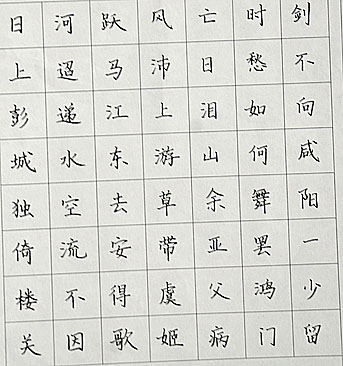 日上彭城独倚楼关
河迢递水空流不因
跃马江东去安得歌
风沛上游草带虞姬
亡日泪山余亚父病
时愁如何舞罢鸿门
剑不向咸阳一少留